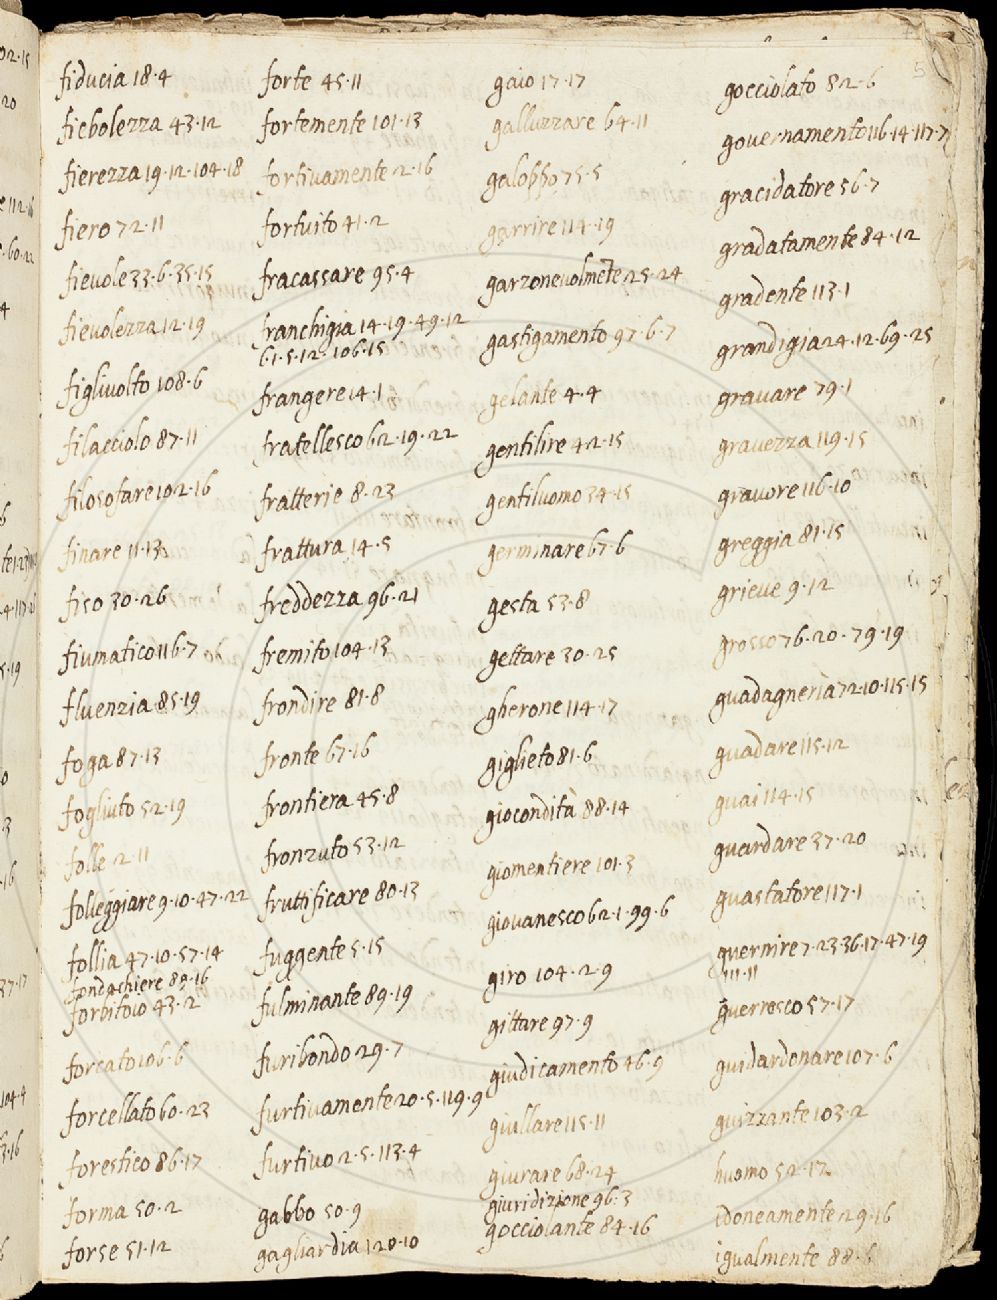 fiducia 18·4
fiebolezza 43·12
fierezza 19·12·104·18
fiero 72·11
fievole 33·6·35·15
fievolezza 12·19
figliuolto 108·6
filacciolo 87·11
filosofare 102·16
finare 11·13
fiso 30·26
fiumatico 116·7
fluenzia 85·19
foga 87·13
fogliuto 52·19
folle 2·11
folleggiare 9·10·47·22
follia 47·10·57·14
fondachiere 89·16
forbitoio 43·2
forcato 106·6
forcellato 60·23
forestico 86·17
forma 50·2
forse 51·12
forte 45·11
fortemente 101·13
fortivamente 2·16
fortuito 41·2
fracassare 95·4
franchigia 14·19·49·12
61·5·12·106·15
frangere 14·1
fratellesco 62·19·22
fratterie 8·23
frattura 14·5
freddezza 96·21
fremito 104·13
frondire 81·8
fronte 67·16
frontiera 45·8
fronzuto 53·12
fruttificare 80·13
fuggente 5·15
fulminante 89·19
furibondo 29·7
furtivamente 20·5·119·9
furtivo 2·5·113·4
gabbo 50·9
gagliardia 120·10
gaio 17·17
galluzzare 64·11
galoppo 75·5
garrire 114·19
garzonevolmẽte 25·24
gastigamento 97·6·7
gelante 4·4
gentilire 42·15
gentiluomo 34·15
germinare 67·6
gesta 53·8
gettare 30·25
gherone 114·17
giglieto 81·6
giocondità 88·14
giomentiere 101·3
giovanesco 62·1·99·6
giro 104·2·9
gittare 97·9
giudicamento 46·9
giullare 115·11
giurare 68·24
giuridizione 96·3
gocciolante 84·16
gocciolato 82·6
governamento 116·14·117·7
gracidatore 56·7
gradatamente 84·12
gradente 113·1
grandigia 24·12·69·25
gravare 79·1
gravezza 119·15
gravore 116·10
greggia 81·15
grieve 9·12
grosso 76·20·79·19
guadagneria 72·10·115·15
guadare 115·12
guai 114·15
guardare 37·20
guastatore 117·1
guernire 7·23 36·17·47·19
111·11
guerresco 57·17
guidardonare 107·6
guizzante 103·2
huomo 52·12
idoneamente 29·16
igualmente 88·6